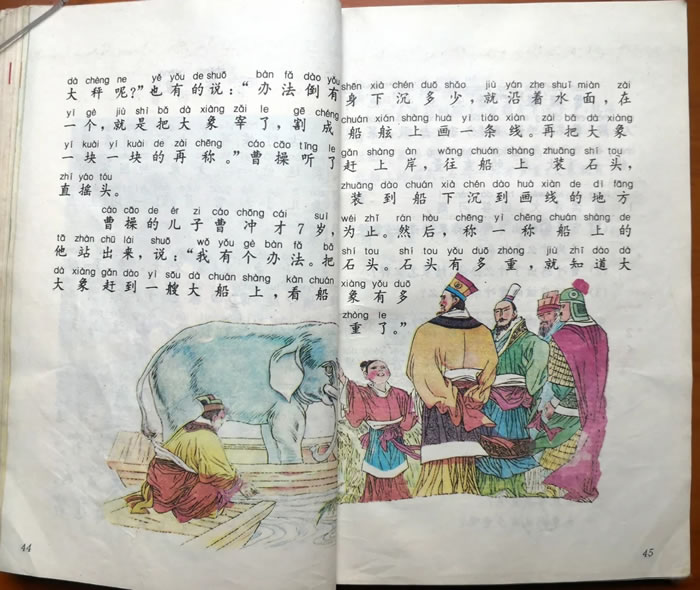 dà chèng ne yě yǒu de shuō bàn fǎ dào yǒu
大秤呢?”也有的说:“办法倒有
yí gè jiù shì bǎ dà xiàng zǎi le gē chéng
一个,就是把大象宰了,割成
yí kuài yí kuài de zài chēng cáo cāo tīng le
一块一块的再称。”曹操听了
zhí yáo tóu
直摇头。
cáo cāo de ér zi cáo chōng cái suì
曹操的儿子曹冲才7岁,
tā zhàn chū lái shuō wǒ yǒu gè bàn fǎ bǎ
他站出来,说:“我有个办法。把
dà xiàng gǎn dào yì sōu dà chuán shàng kàn chuán
大象赶到一艘大船上,看船
44
shēn xià chén duō shǎo jiù yán zhe shuǐ miàn zài
身下沉多少,就沿着水面,在
chuán xián shàng huà yì tiáo xiàn zài bǎ dà xiàng
船舷上画一条线。再把大象
gǎn shàng àn wǎng chuán shàng zhuāng shí tou
赶上岸,往船上装石头,
zhuāng dào chuán xià chén dào huà xiàn de dì fāng
装到船下沉到画线的地方
wéi zhǐ rán hòu chēng yì chēng chuán shàng de
为止。然后,称一称船上的
shí tou shí tou yǒu duō zhòng jiù zhī dào dà
石头。石头有多重,就知道大
xiàng yǒu duō
象有多
zhòng le
重了。”
45